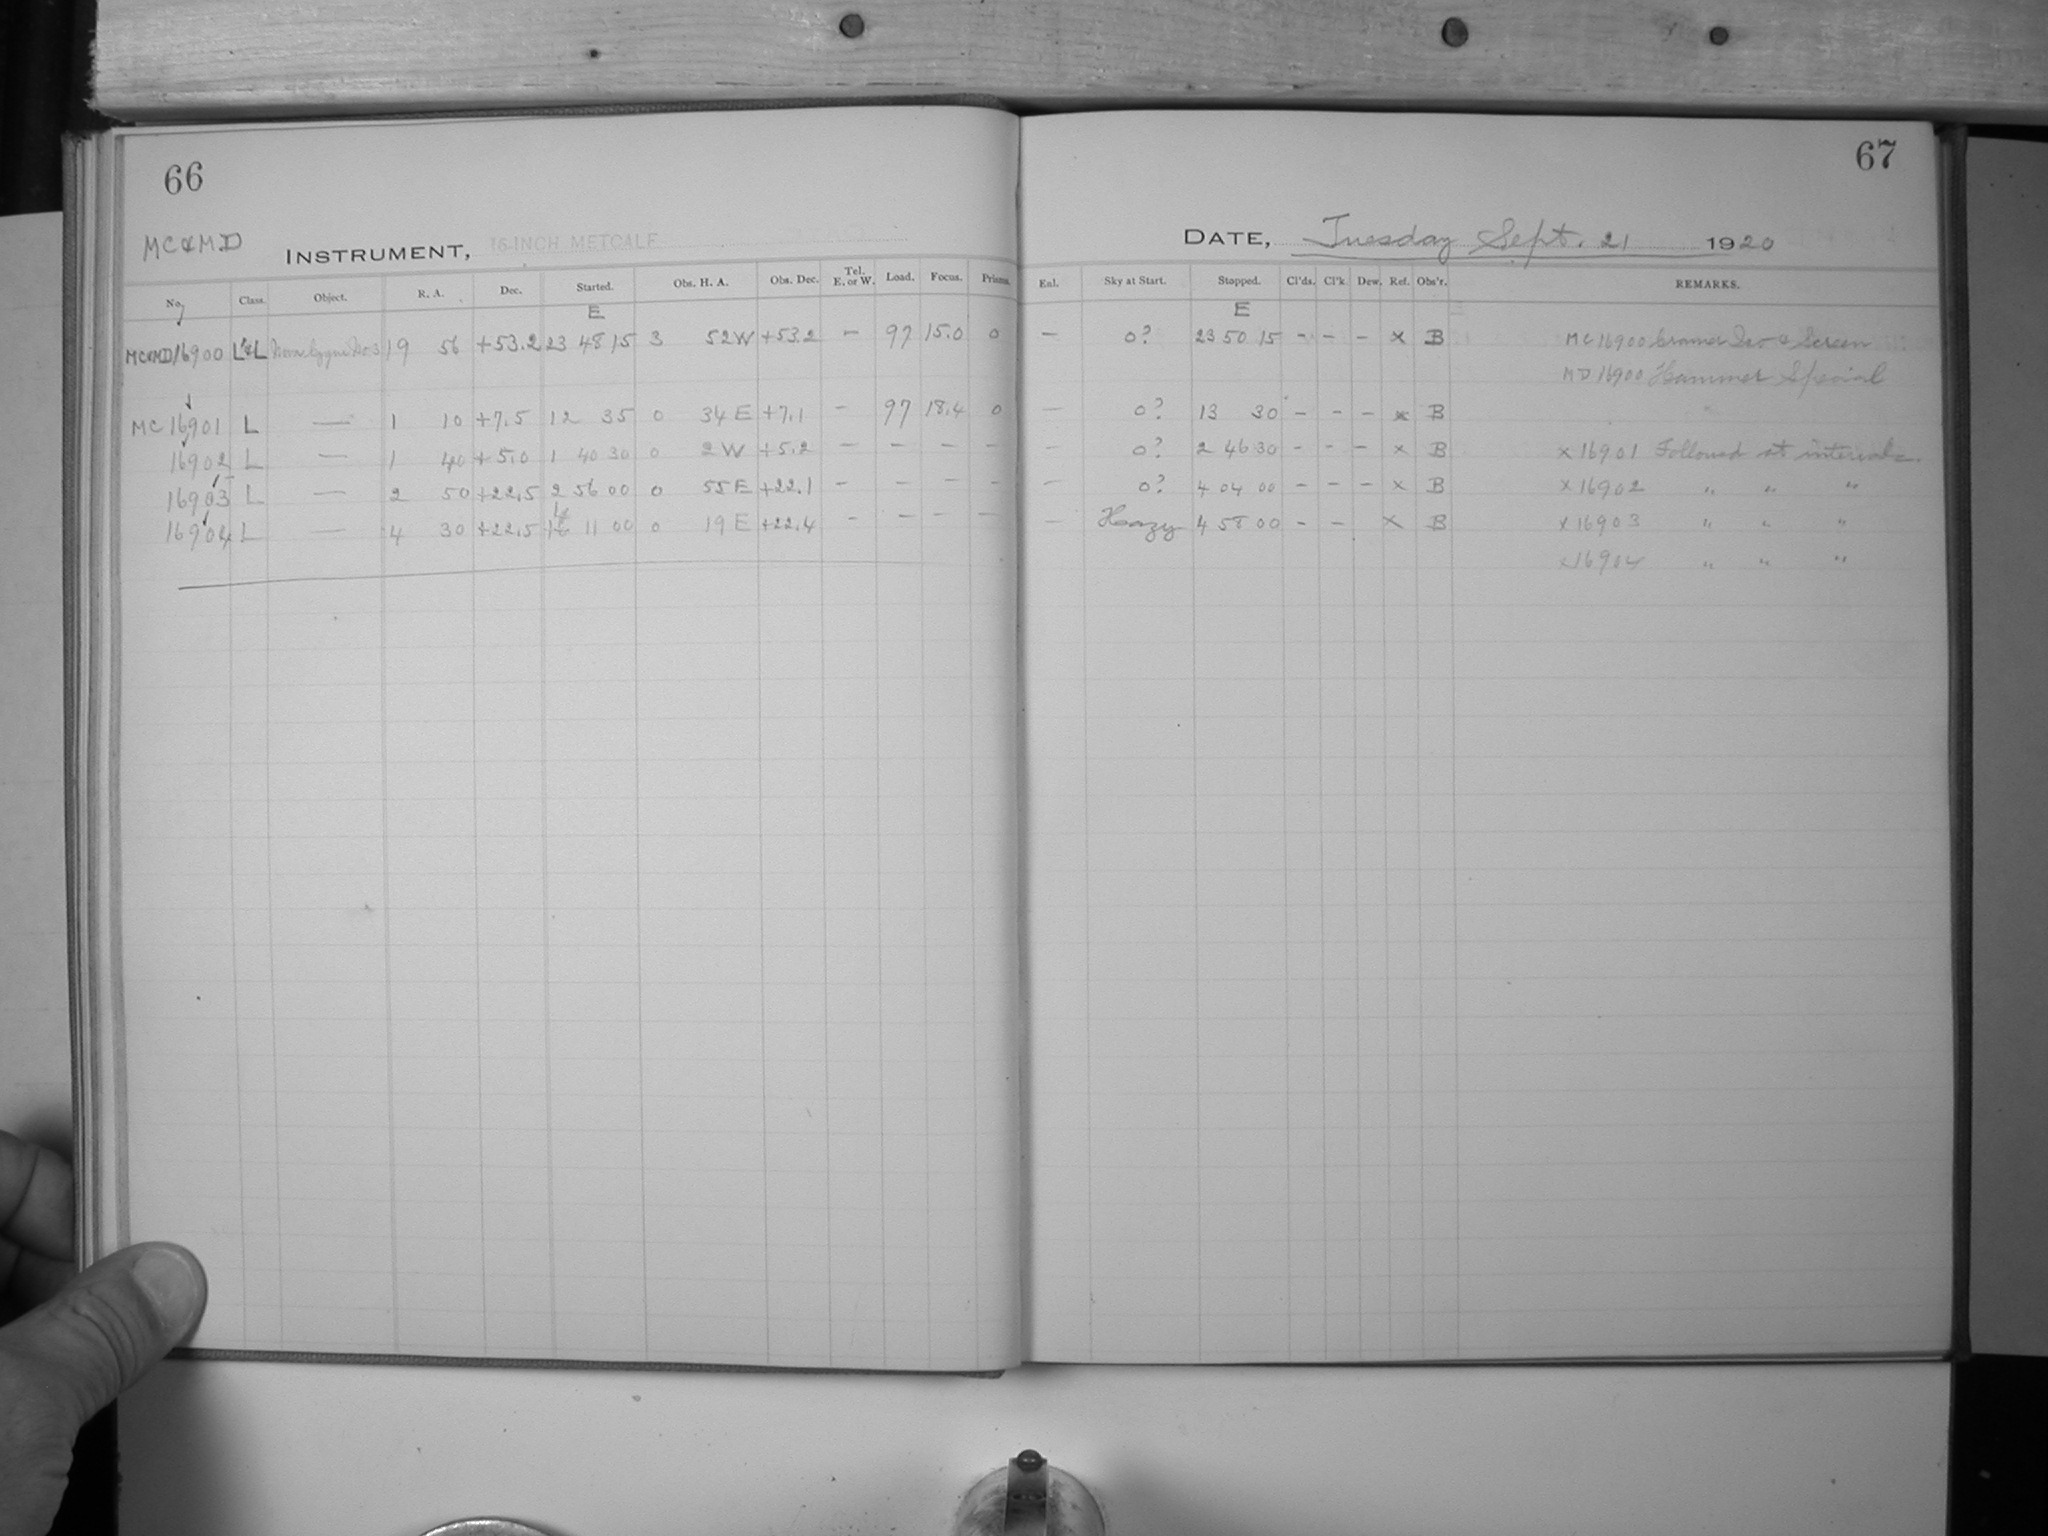 66
MC & MD INSTRUMENT, 16-INCH METCALF
No. Class. Object. R. A. Dec. Started. Obs. H. A. Obs. Dec. Tel. E. or W. Load. Focus. Prisms.
E
MC&MD 16900 L'&L Nova Cygni No 3 19 56 +53.2 23 48 15 3 52 W +53.2 — 97 15.0 0
MC 16901 L — 1 10 +7.5 1 2 35 0 34 E +7.1 - 97 18.4 0
16902 L — 1 40 +5.0 1 40 30 0 2 W +5.2 — — — —
16903 L — 2 50 +22.5 2 56 00 0 55 E +22.1 - — — —
16904 L — 4 30 +22.5 4 11 00 0 19 E +22.4 - — — —
67
DATE, Tuesday Sept. 21 1920
Enl. Sky at Start. Stopped. Cl'ds. Cl'k. Dew. Ref. Obs'r. REMARKS.
E
— 0? 23 50 15 - - - x B MC 16900 Cramer Iso & Screen
MD 16900 Hammer Special
— 0? 1 3 30 - - - x B
— 0? 2 46 30 - - - x B x 16901 Followed at intervals
— 0? 4 04 00 - - - x B x 16902 " " "
— Hazy 4 58 00 - - x B x 16903 " " "
x 16904 " " "